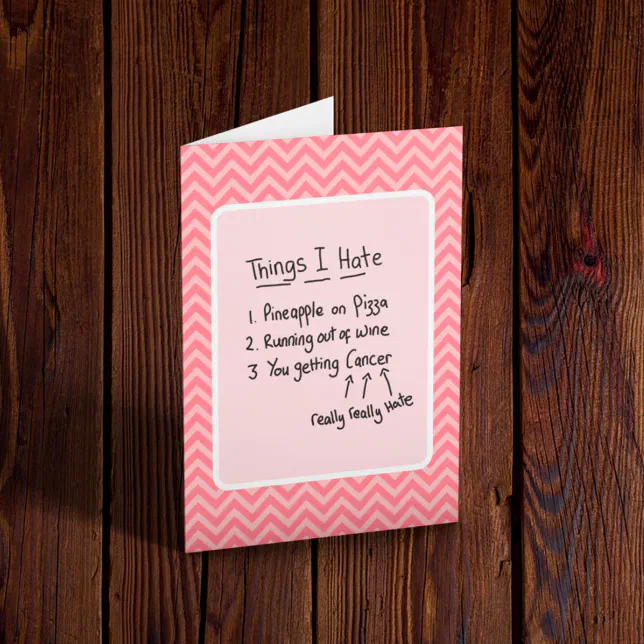 Things I Hate
1. Pineapple on Pizza
2. Running out of wine
3 You getting Cancer
really really Hate